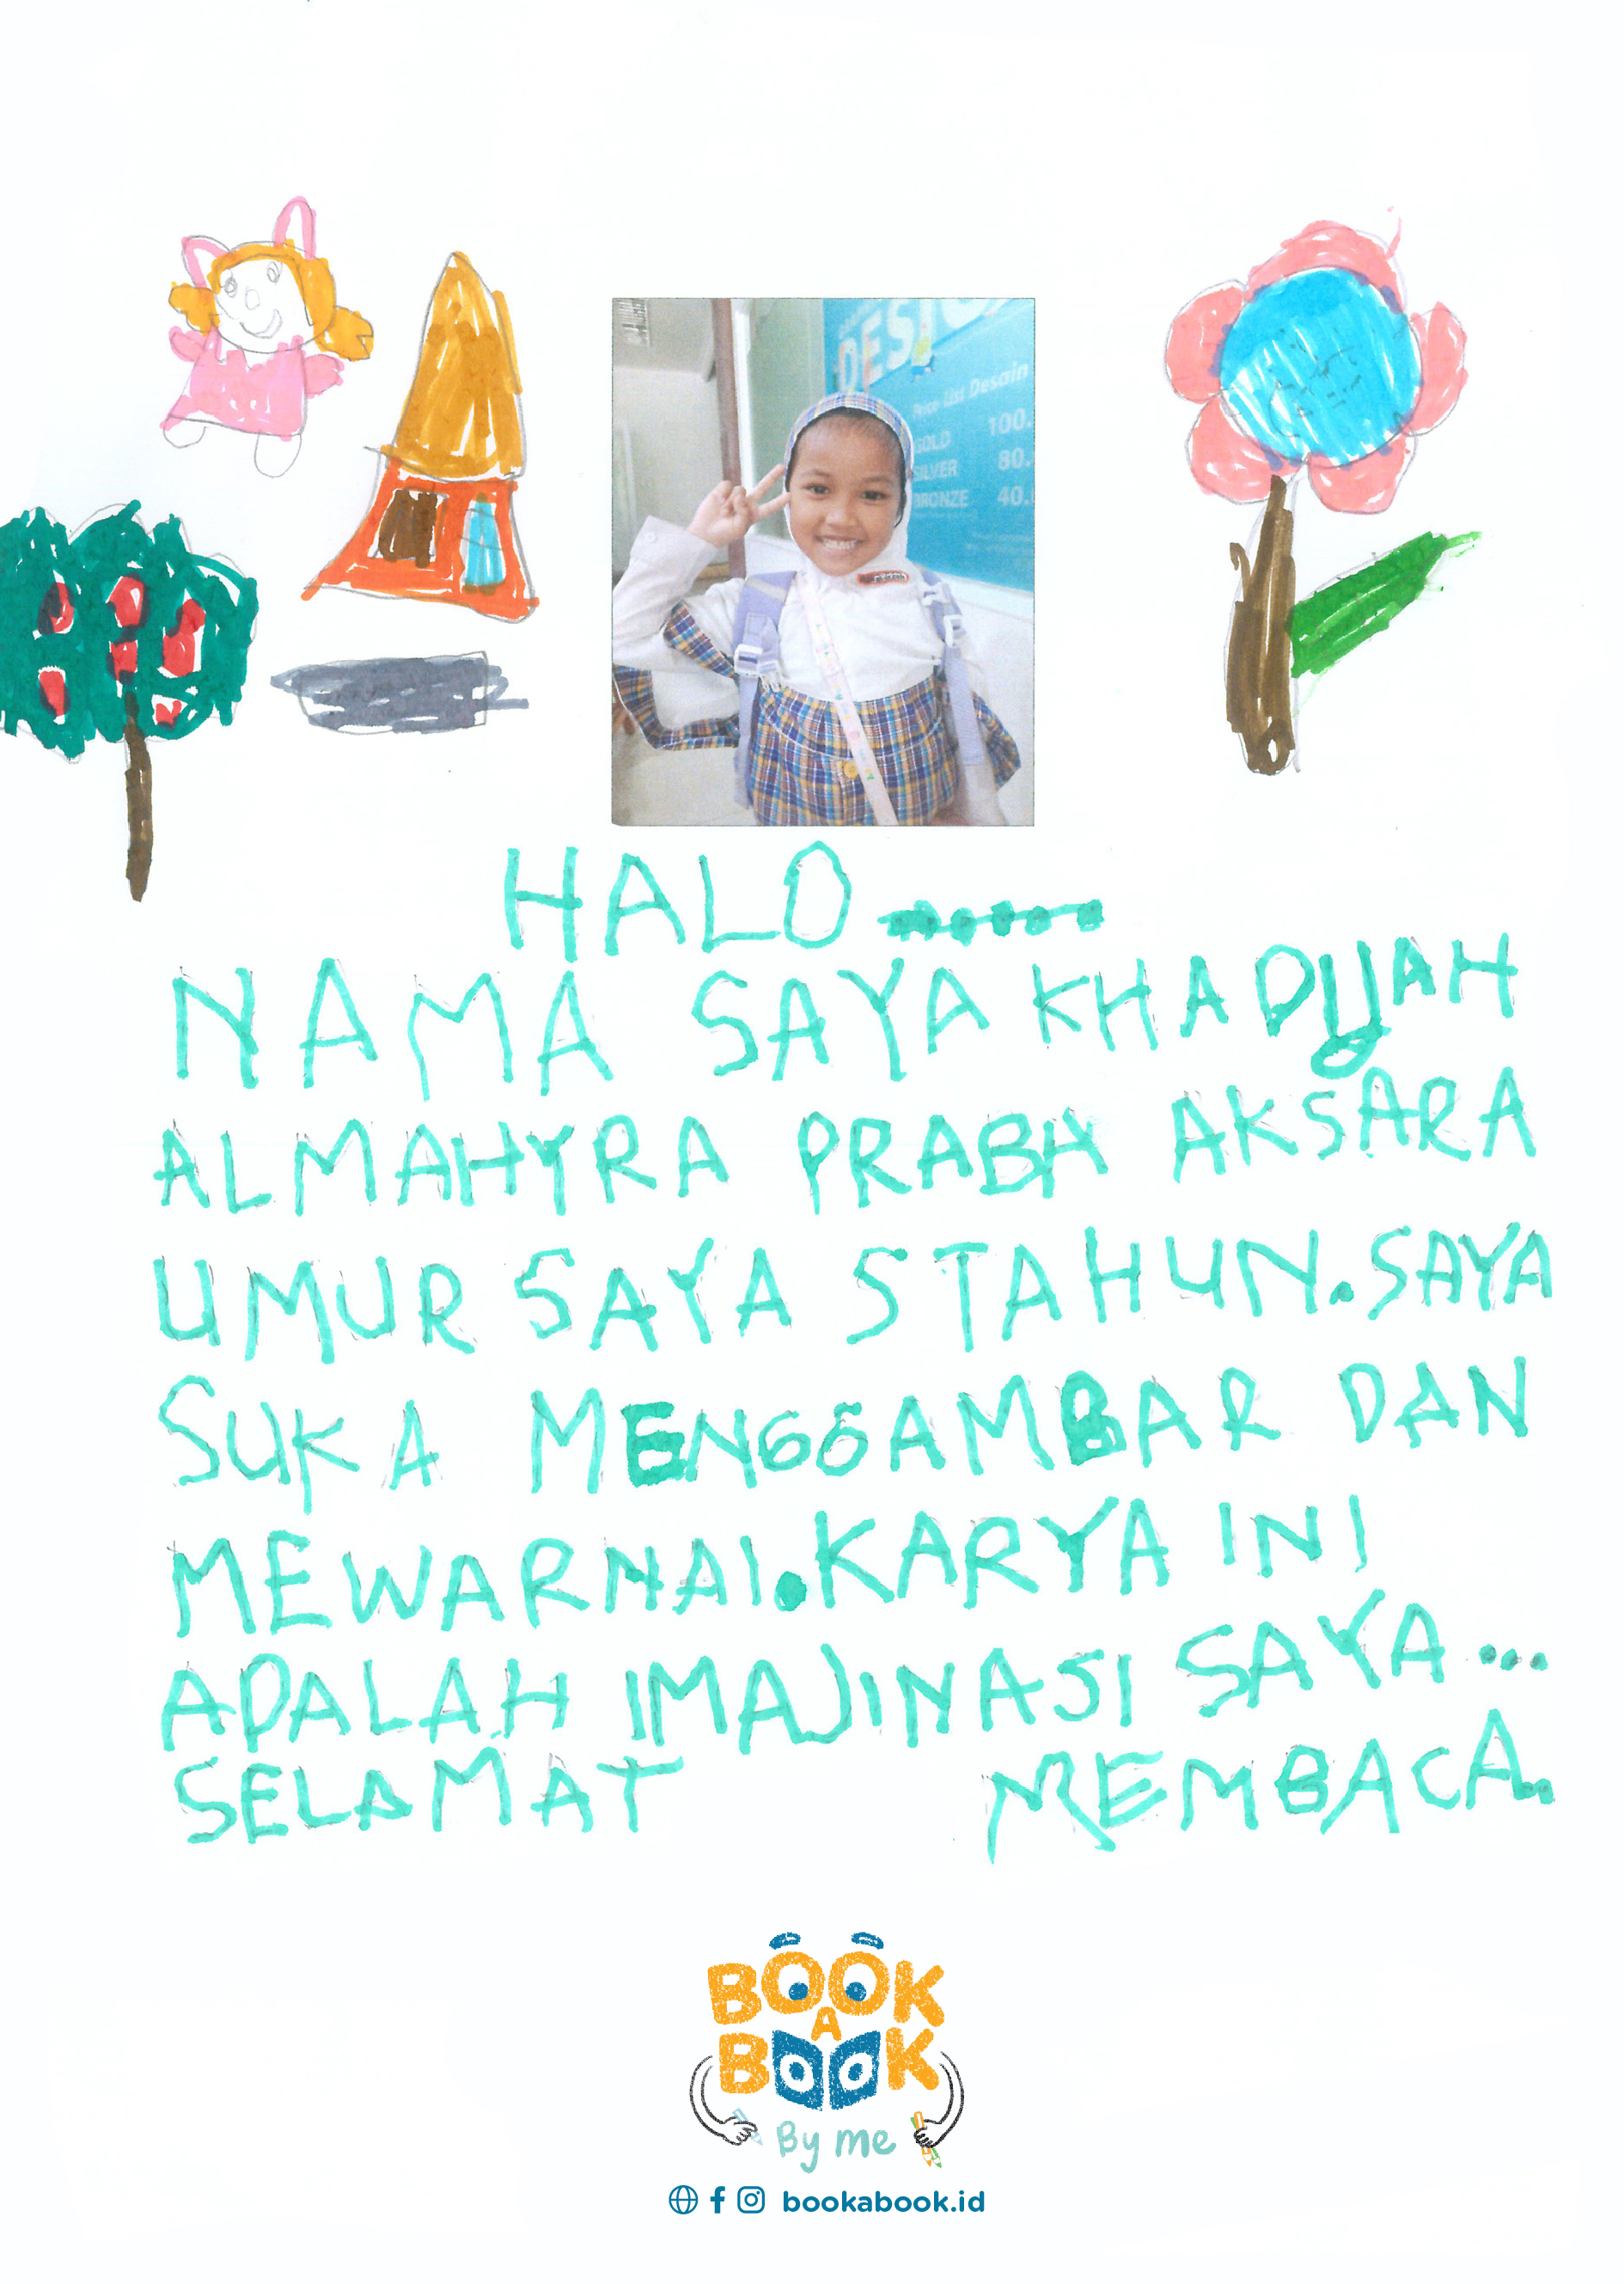 DESIG
Price List Desain
GOLD 100.
SILVER 80.
BRONZE 40.
HALO .....
NAMA SAYA KHADIJAH
ALMAHYRA PRABA AKSARA
UMUR SAYA 5 TAHUN. SAYA
SUKA MENGGAMBAR DAN
MEWARNAI. KARYA INI
ADALAH IMAJINASI SAYA ...
SELAMAT MEMBACA..
BOOK
A
BOOK
By me
bookabook.id